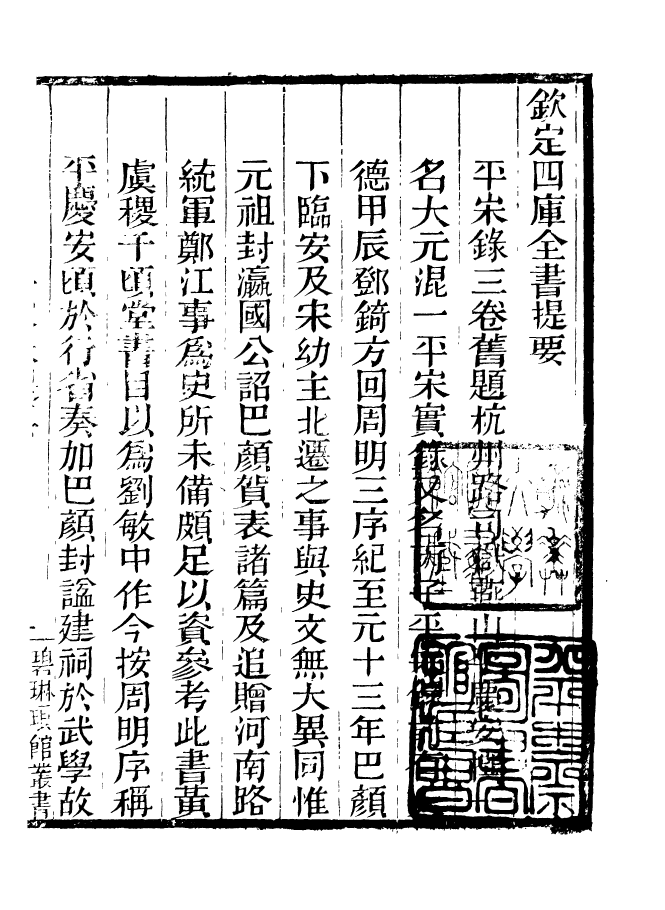 欽定四庫全書提要
平宋錄三卷舊題杭州路司獄燕山平慶安撰
名大元混一平宋實錄又名丙子平宋錄
德甲辰鄧錡方回周明三序紀至元十三年巴顏
下臨安及宋幼主北遷之事與史文無大異同惟
元祖封瀛國公詔巴顏賀表諸篇及追贈河南路
統軍鄭江事為史所未備頗足以資參考此書黃
虞稷千頃堂書目以為劉敏中作今按周明序稱
平慶安頃於行省奏加巴顏封謚建祠於武學故
一 碧琳琅館叢書